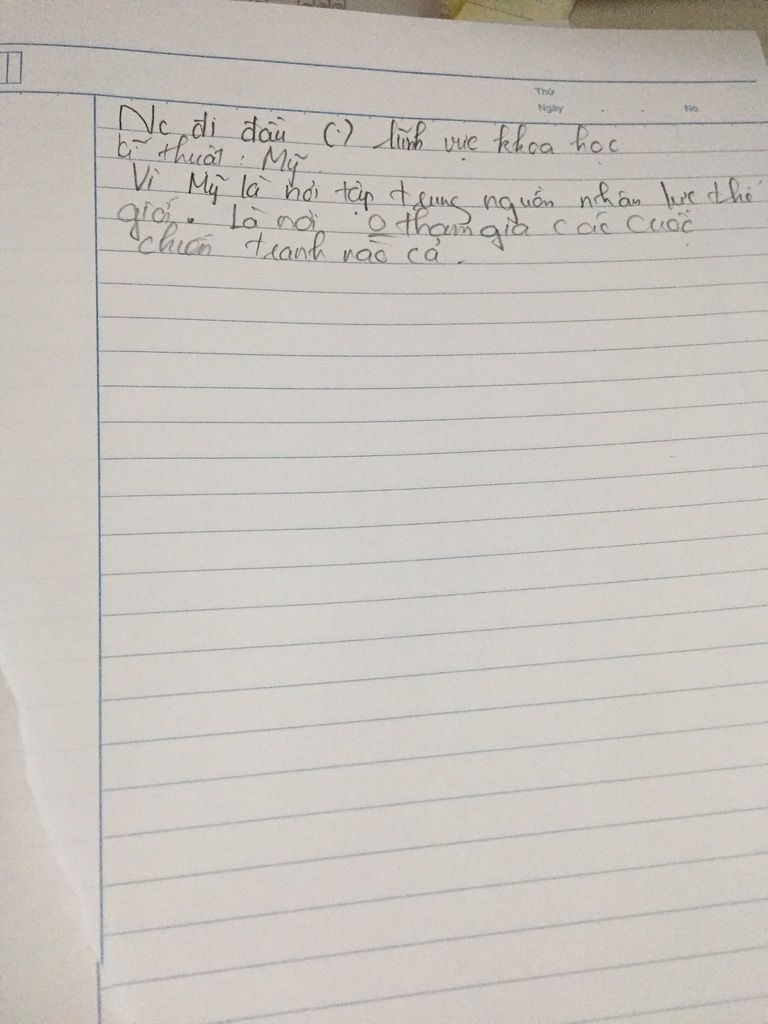 Thứ
Ngày . . . No.
Nc đi đầu (.) lĩnh vực khoa học
kĩ thuật : Mỹ
Vì Mỹ là nơi tập trung nguồn nhân lực thế
giới. Là nơi 0 tham gia các cuộc
chiến tranh nào cả.